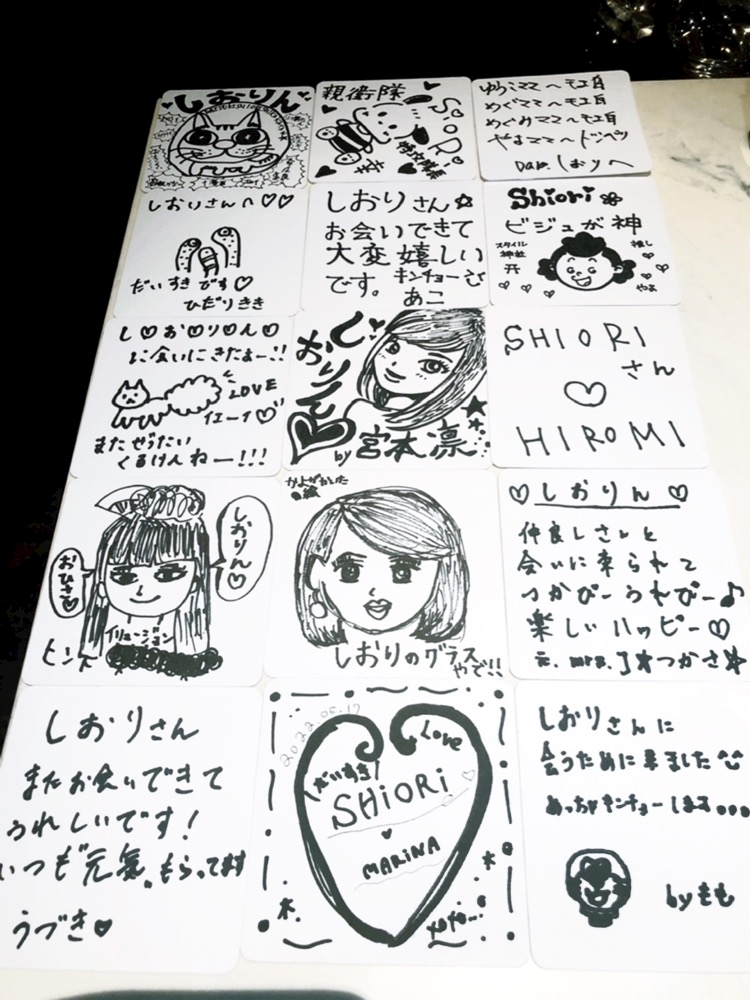 しおりん
親衛隊
SiORi
幸
ゆうこママへ モエ自
めぐママへ モエ自
めぐみママへ モエ自
やまママへ ドンペリ
Dab. しおりへ
しおりさんへ♡♡
だいすきです♡
ひだりきき
しおりさん☆
お会いできて
大変嬉しい
です。キンチョーび
あこ
Shiori
ビジュが神
スタイル
神社
推し
やよ
し♡お♡り♡ん♡
に会いにきたよー!!
LOVE
イエーイ♡
またぜったい
くるけんねー!!!
しおりん
by 宮本凛
SHIORI
さん
♡
HIROMI
しおりん♡
おひさ♡
ヒント
イリュージョン
しおりのグラス
やで!!
♡しおりん♡
仲良しさんと
会いに来られて
つかぴーうれぴー♪
楽しいハッピー♡
元. mrs. J★つかさ
しおりさん
またお会いできて
うれしいです!
いつも元気、もらってます
うづき♥
2022.05.17
Love
だいすき
SHiORi
♥
MARiNA
xoxo...
しおりさんに
会うために来ました
めっちゃキンチョーします...
by もも